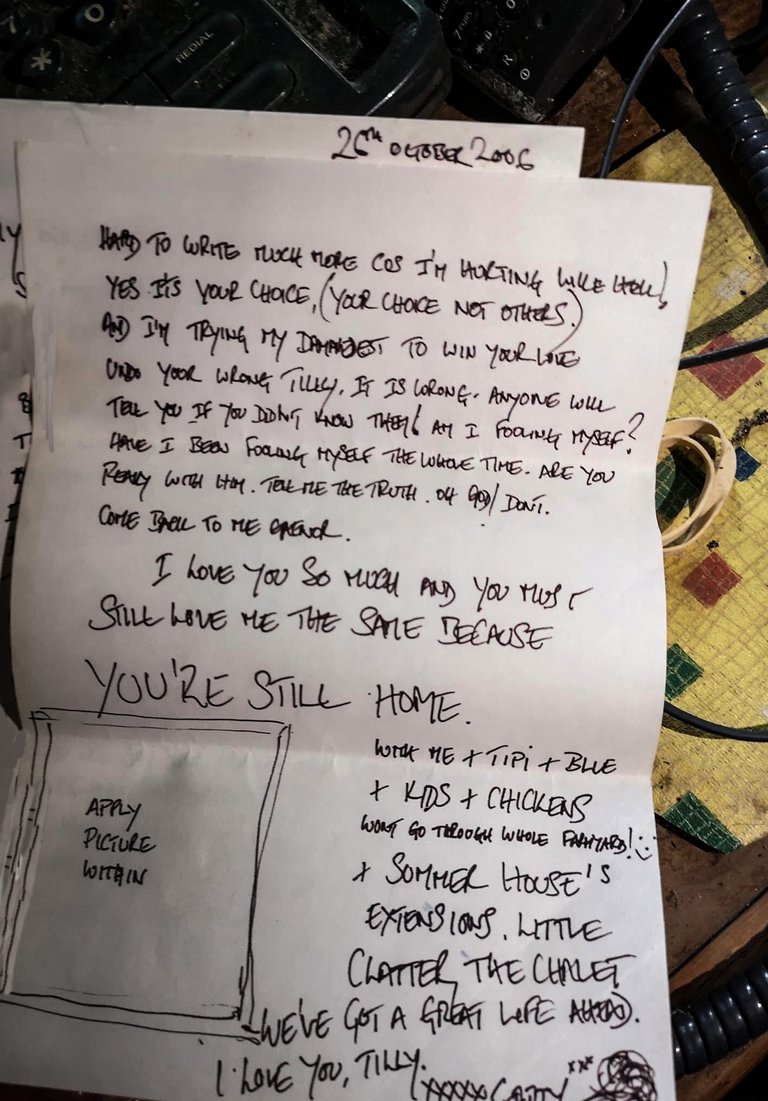 REDIAL
26TH OCTOBER 2006
HARD TO WRITE MUCH MORE COS I'M HURTING LIKE HELL!
YES IT'S YOUR CHOICE, (YOUR CHOICE NOT OTHERS.)
AND I'M TRYING MY DAMNDEST TO WIN YOUR LOVE
UNDO YOUR WRONG TILLY. IT IS WRONG. ANYONE WILL
TELL YOU IF YOU DIDN'T KNOW THEM! AM I FOOLING MYSELF?
HAVE I BEEN FOOLING MYSELF THE WHOLE TIME. ARE YOU
REALLY WITH HIM. TELL ME THE TRUTH. OH GOD! DON'T.
COME BACK TO ME
I LOVE YOU SO MUCH AND YOU MUST
STILL LOVE ME THE SAME BECAUSE
YOU'RE STILL HOME.
WITH ME + TIPI + BLUE
+ KIDS + CHICKENS
WONT GO THROUGH WHOLE FARMYARD!
+ SOMMER HOUSE'S
EXTENSIONS. LITTLE
CLATTER, THE CHALET
WE'VE GOT A GREAT LIFE AHEAD.
I LOVE YOU, TILLY.
XXXXX XXX
APPLY
PICTURE
WITHIN